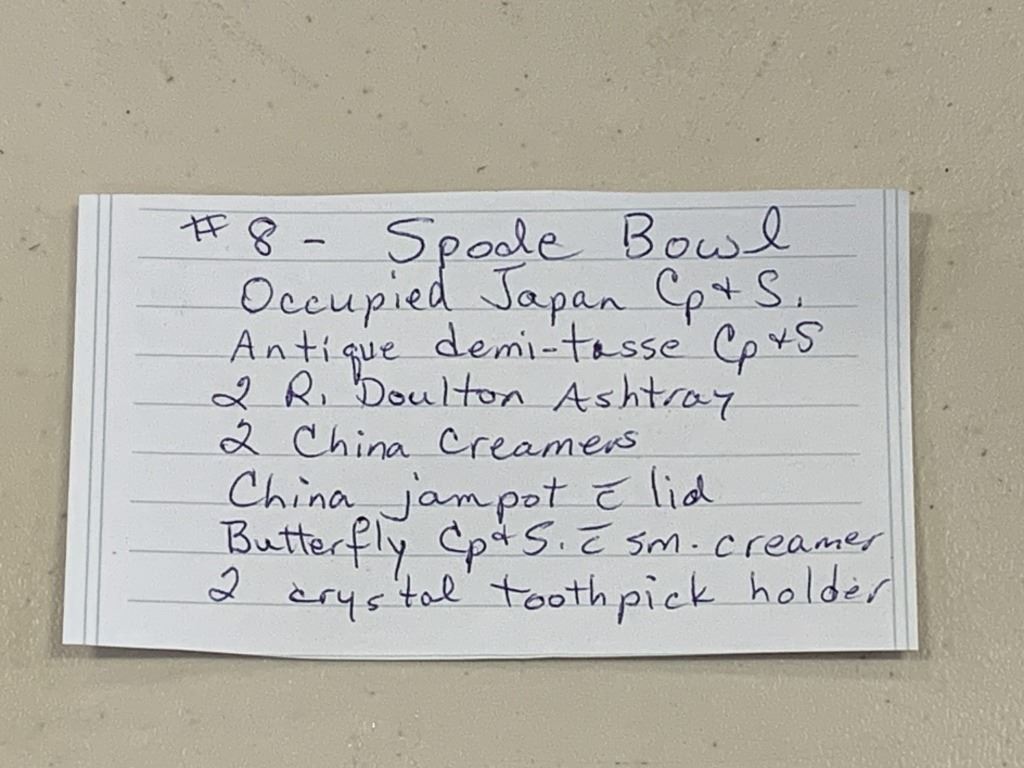 #8 - Spode Bowl
Occupied Japan Cp + S.
Antique demi-tasse Cp + S
2 R. Doulton Ashtray
2 China Creamers
China jampot c̄ lid
Butterfly Cp + S. c̄ sm. creamer
2 crystal toothpick holder